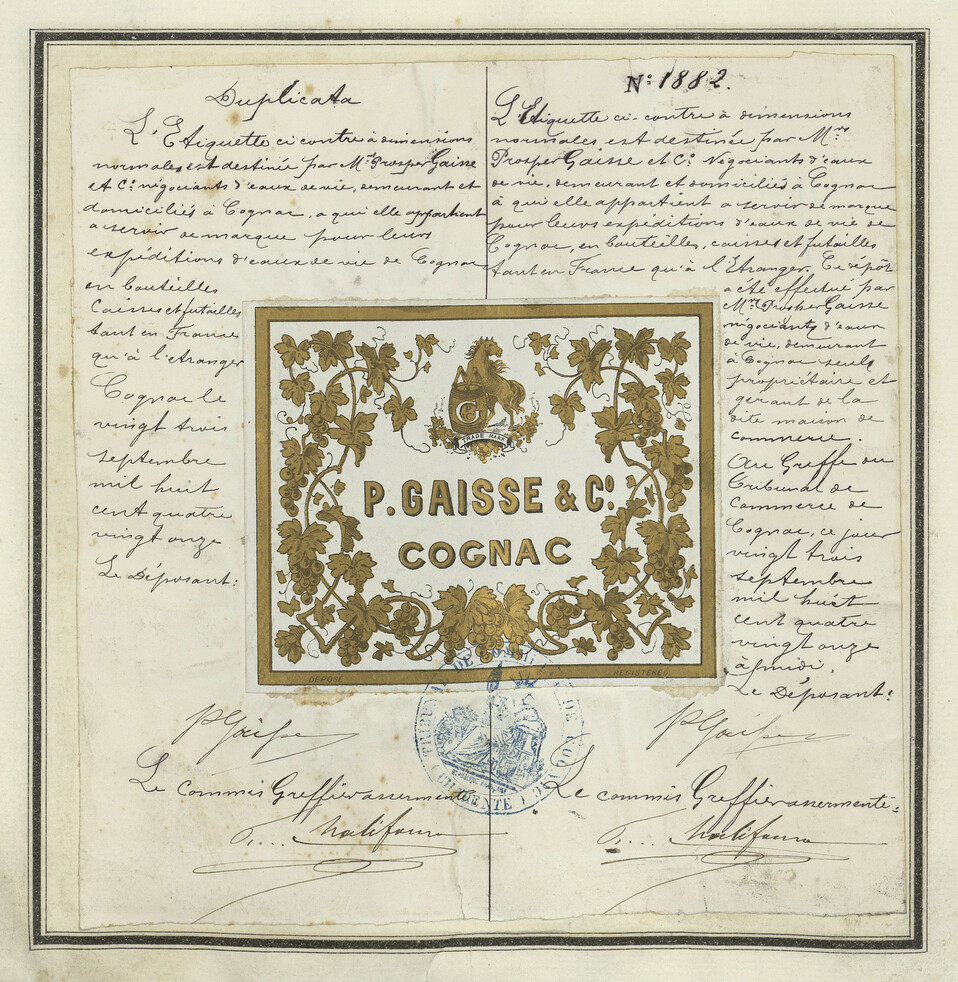 Duplicata
L'Etiquette ci contre à dimensions
normales est destinée par Mrs Prosper Gaisse
et Co. négociants d'eaux de vie, demeurant et
domiciliés à Cognac, a qui elle appartient
a servir de marque pour leurs
expéditions d'eaux de vie de Cognac
en bouteilles
caisses et futailles
tant en France
qu'à l'etranger
Cognac le
vingt trois
septembre
mil huit
cent quatre
vingt onze
Le Déposant:
P Gaisse
Le commis Greffier assermenté
No. 1882.
L'Etiquette ci-contre à dimensions
normales est destinée par Mrs
Prosper Gaisse et Co. Négociants d'eaux
de vie, demeurant et domiciliés à Cognac
à qui elle appartient a servir de marque
pour leurs expéditions d'eaux de vie de
Cognac, en bouteilles, caisses et futailles
tant en France qu'à l'Etranger. Ce dépôt
a été effectué par
Mr Prosper Gaisse
négociants d'eaux
de vie, demeurant
à Cognac seul
propriétaire et
gerant de la
dite maison de
commerce.
Au Greffe du
Tribunal de
Commerce de
Cognac, ce jour
vingt trois
septembre
mil huit
cent quatre
vingt onze
à midi,
Le Déposant:
P Gaisse
Le commis Greffier assermenté:
G
TRADE MARK
P. GAISSE & Co.
COGNAC
DÉPOSÉ
REGISTERED
TRIBUNAL DE COMMERCE DE COGNAC
(CHARENTE)